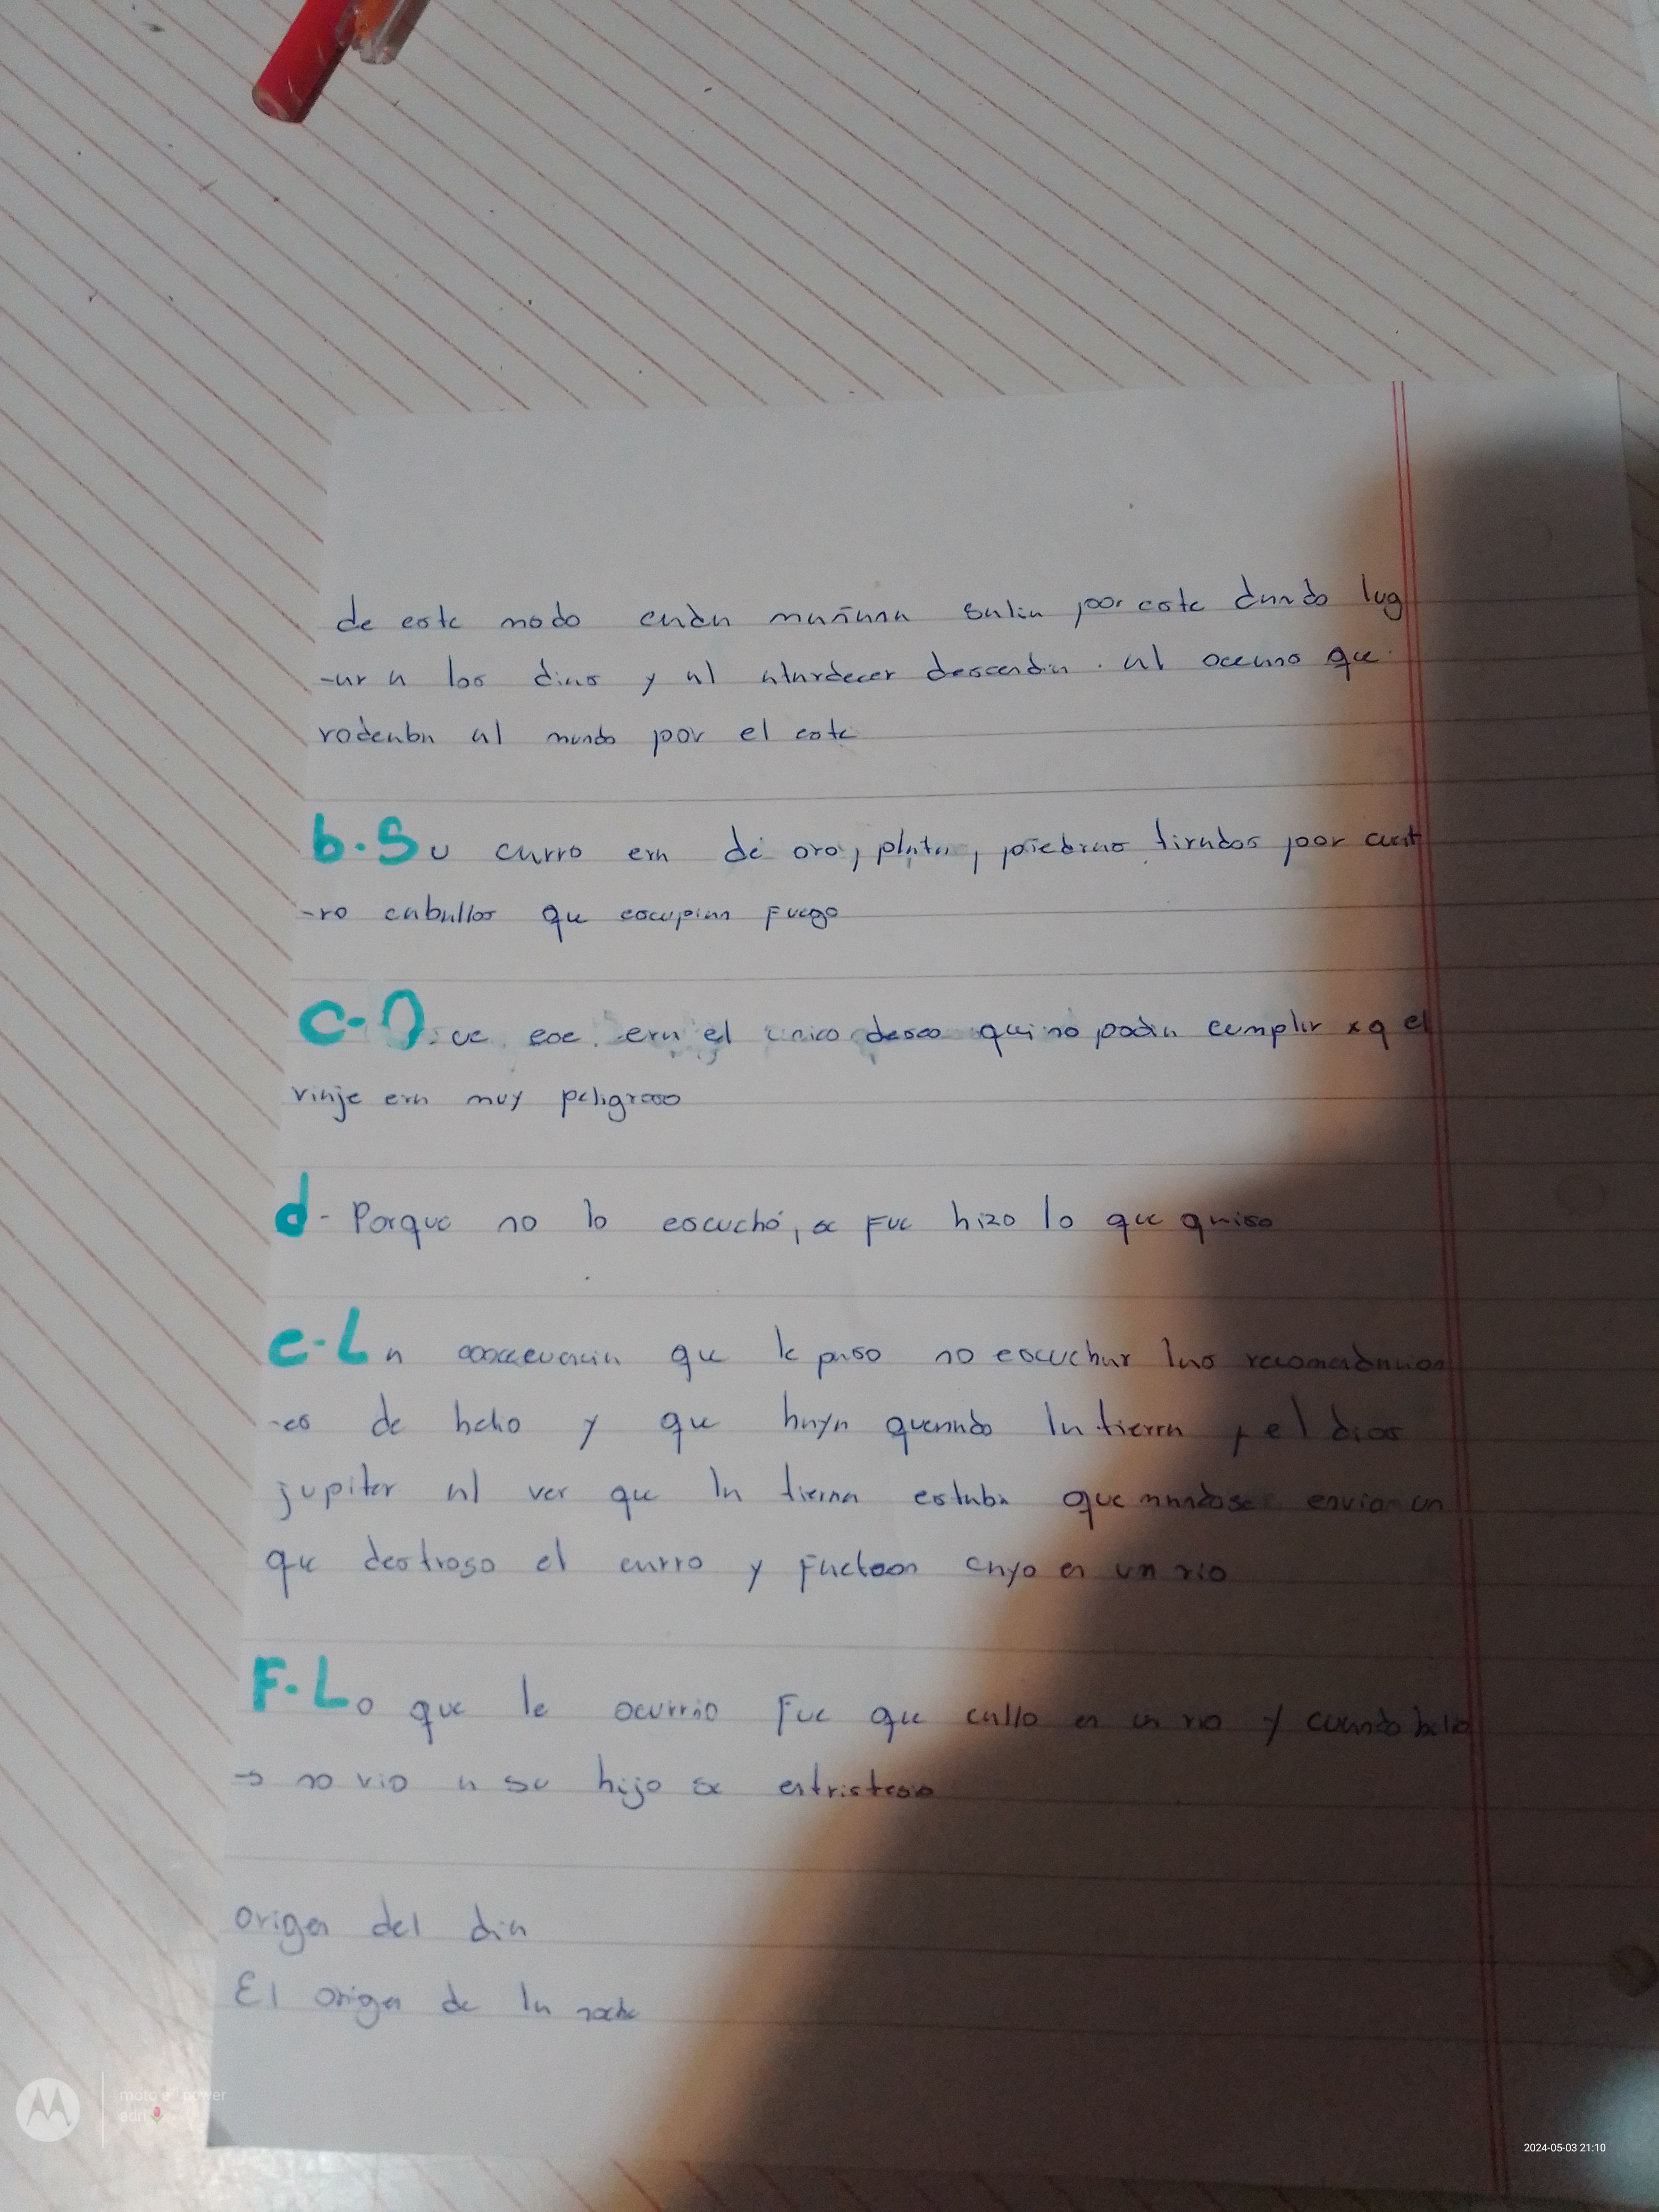 de este modo cada mañana salia por este dando lug
-ar a los dias y al atardecer descendia. al oceano que
rodeaba al mundo por el este
b. Su carro era de oro, plata, piedras tirados por cuat
-ro caballos que escupian Fuego
C- Que ese era el unico deseo que no podia cumplir xq el
viaje era muy peligroso
d- Porque no lo escuchó, se Fue hizo lo que quiso
e- La consecuencia que le paso no escuchar las recomendacion
-es de helio y que haya quemado la tierra y el dios
jupiter al ver que la tierra estaba quemandose envio un
que destroso el carro y Faeteon cayo en un rio
F- Lo que le ocurrio Fue que callo en un rio y cuando helio
→ no vio a su hijo se entristesio
origen del dia
El origen de la noche
moto e power
adri
2024-05-03 21:10